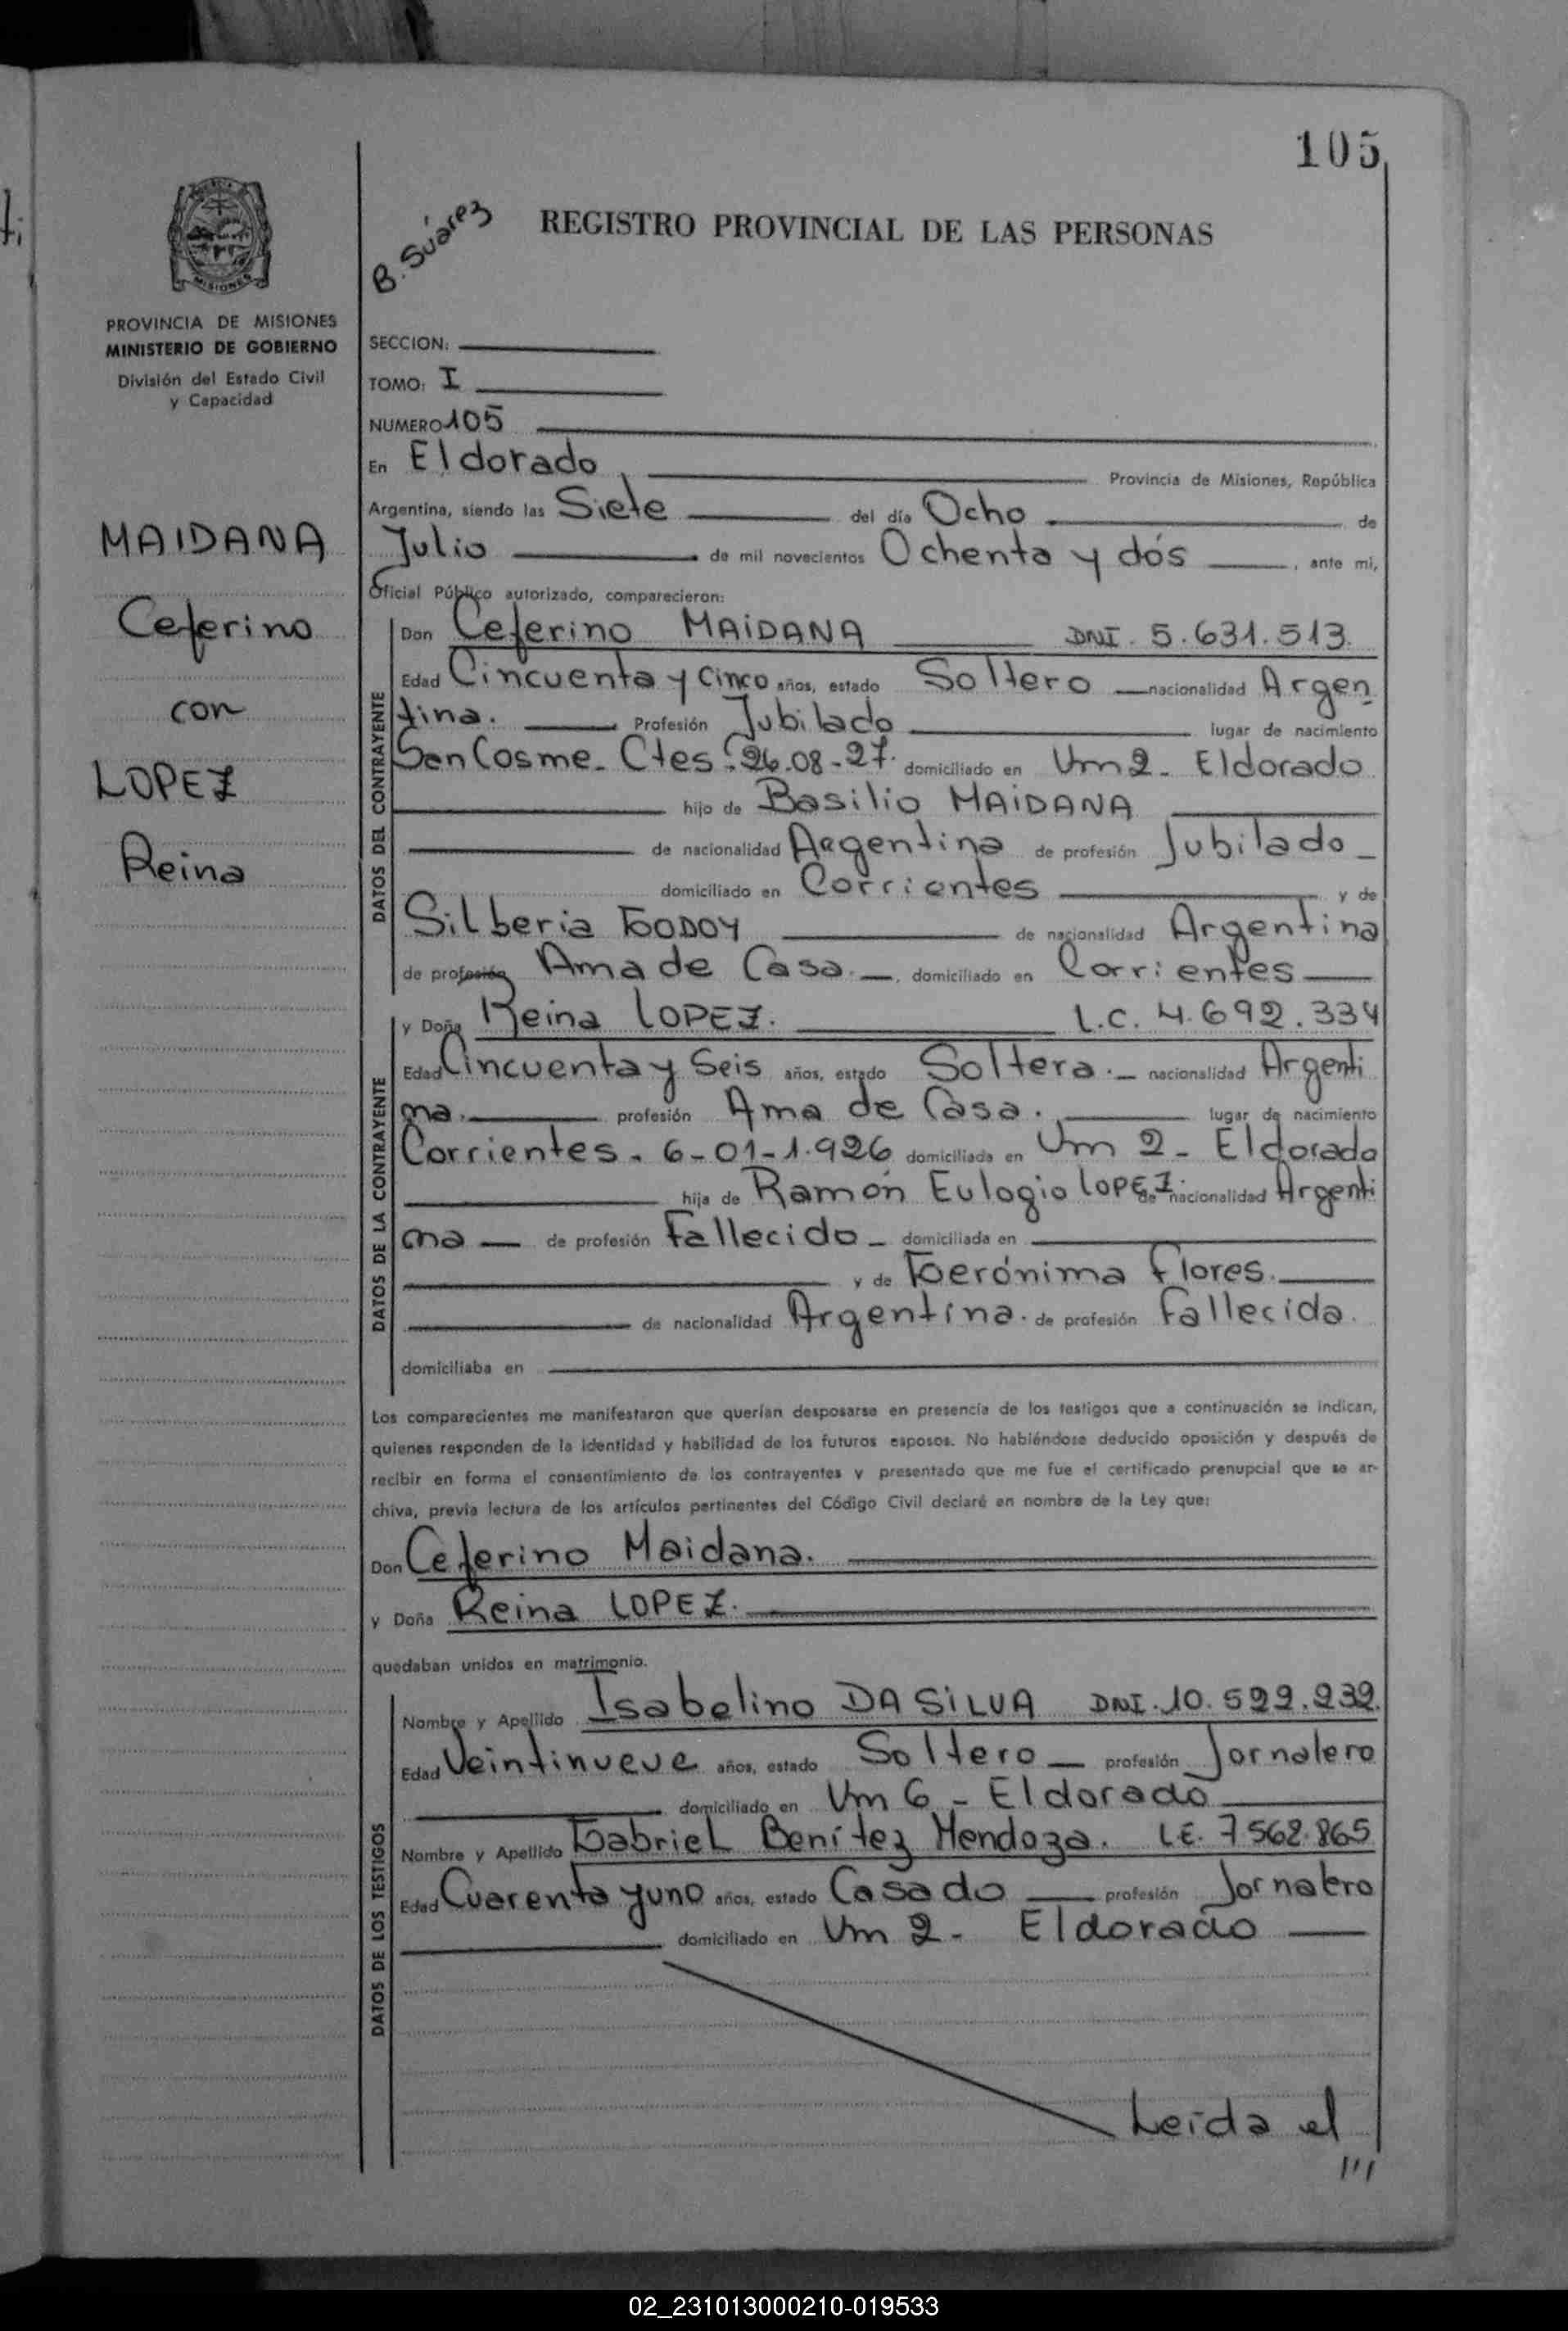 105
B. Suárez
REGISTRO PROVINCIAL DE LAS PERSONAS
MISIONES
PROVINCIA DE MISIONES
MINISTERIO DE GOBIERNO
División del Estado Civil
y Capacidad
MAIDANA
Ceferino
con
LOPEZ
Reina
SECCION:
TOMO: I
NUMERO 105
En Eldorado, Provincia de Misiones, República
Argentina, siendo las Siete del día Ocho de
Julio de mil novecientos Ochenta y dós, ante mi,
Oficial Público autorizado, comparecieron:
DATOS DEL CONTRAYENTE
Don Ceferino MAIDANA DNI. 5.631.513.
Edad Cincuenta y Cinco años, estado Soltero nacionalidad Argen
tina. Profesión Jubilado lugar de nacimiento
San Cosme - Ctes. 26-08-27. domiciliado en Km 2 - Eldorado
hijo de Basilio MAIDANA
de nacionalidad Argentina de profesión Jubilado -
domiciliado en Corrientes y de
Silberia GODOY de nacionalidad Argentina
de profesión Ama de Casa. domiciliado en Corrientes
DATOS DE LA CONTRAYENTE
y Doña Reina LOPEZ. L.C. 4.692.334
Edad Cincuenta y Seis años, estado Soltera. - nacionalidad Argenti
na. profesión Ama de Casa. lugar de nacimiento
Corrientes - 6-01-1.926 domiciliada en Km 2 - Eldorado
hija de Ramón Eulogio LOPEZ de nacionalidad Argenti
na - de profesión Fallecido - domiciliada en
y de Gerónima Flores.
de nacionalidad Argentina. de profesión Fallecida.
domiciliaba en
Los comparecientes me manifestaron que querían desposarse en presencia de los testigos que a continuación se indican,
quienes responden de la identidad y habilidad de los futuros esposos. No habiéndose deducido oposición y después de
recibir en forma el consentimiento de los contrayentes y presentado que me fue el certificado prenupcial que se ar-
chiva, previa lectura de los artículos pertinentes del Código Civil declaré en nombre de la Ley que:
Don Ceferino Maidana.
y Doña Reina LOPEZ.
quedaban unidos en matrimonio.
DATOS DE LOS TESTIGOS
Nombre y Apellido Isabelino DA SILVA DNI. 10.599.939.
Edad Veintinueve años, estado Soltero - profesión Jornalero
domiciliado en Km 6 - Eldorado
Nombre y Apellido Gabriel Benítez Mendoza. L.E. 7562.865
Edad Cuarenta y uno años, estado Casado profesión Jornalero
domiciliado en Km 2 - Eldorado
Leída el
///
02_231013000210-019533